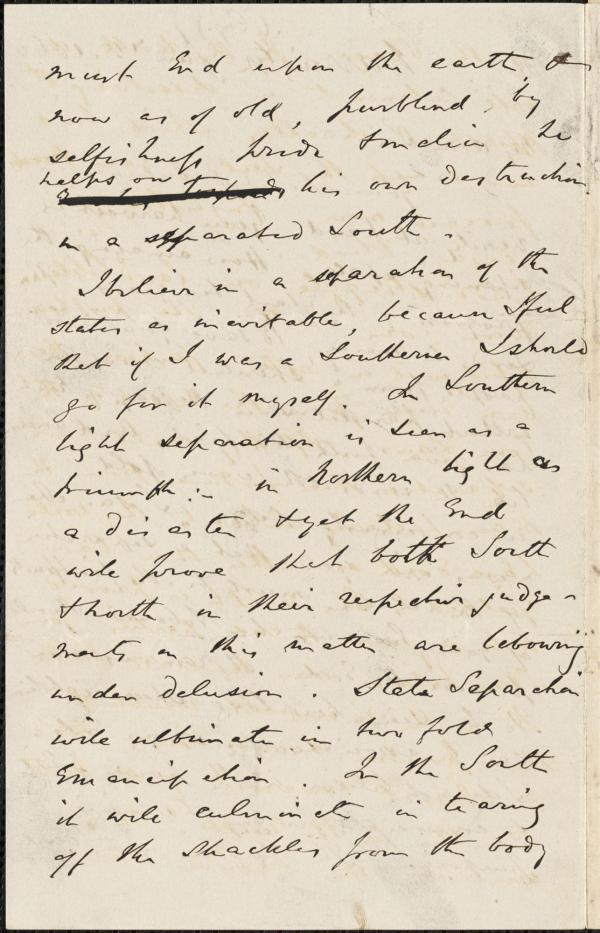 must End upon the earth, &
now as of old, purblind by
selfishness pride & malice he
helps on
his own destruction
in a separated South.
I believe in a separation of the
states as inevitable, because I feel
that if I was a Southerner I should
go for it myself. In Southern
light separation is seen as a
triumph :- in Northern light as
a disaster & yet the End
will prove that both South
& North in their respective judge-
ments on this matter are labouring
under delusion. State Separation
will ultimate in two fold
Emancipation. In the South
it will culminate in tearing
off the shackles from the body